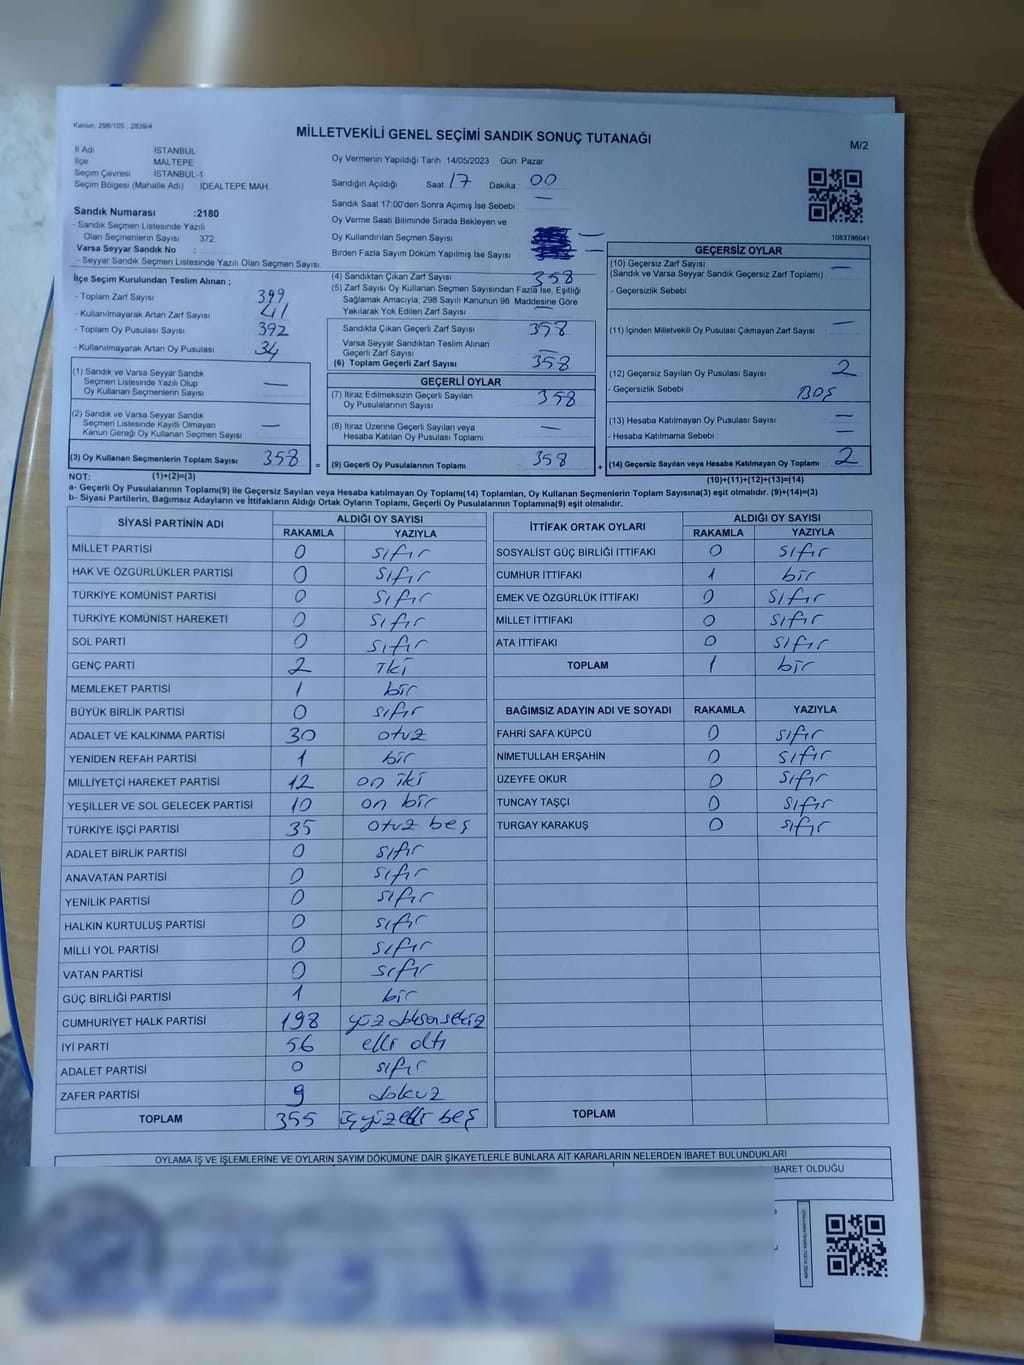 Kanun: 298/105 , 2839/4
MİLLETVEKİLİ GENEL SEÇİMİ SANDIK SONUÇ TUTANAĞI
M/2
İl Adı İSTANBUL
İlçe MALTEPE
Seçim Çevresi İSTANBUL-1
Seçim Bölgesi (Mahalle Adı) İDEALTEPE MAH.
Sandık Numarası :2180
- Sandık Seçmen Listesinde Yazılı
Olan Seçmenlerin Sayısı 372
Varsa Seyyar Sandık No :
- Seyyar Sandık Seçmen Listesinde Yazılı Olan Seçmen Sayısı :
İlçe Seçim Kurulundan Teslim Alınan ;
- Toplam Zarf Sayısı 399
- Kullanılmayarak Artan Zarf Sayısı 41
- Toplam Oy Pusulası Sayısı 392
- Kullanılmayarak Artan Oy Pusulası 34
(1) Sandık ve Varsa Seyyar Sandık
Seçmen Listesinde Yazılı Olup
Oy Kullanan Seçmenlerin Sayısı —
(2) Sandık ve Varsa Seyyar Sandık
Seçmen Listesinde Kayıtlı Olmayan
Kanun Gereği Oy Kullanan Seçmen Sayısı —
(3) Oy Kullanan Seçmenlerin Toplam Sayısı 358
(1)+(2)=(3)
Oy Vermenin Yapıldığı Tarih :14/05/2023 Gün Pazar
Sandığın Açıldığı Saat 17 Dakika 00
Sandık Saat 17:00'den Sonra Açımış İse Sebebi : —
Oy Verme Saati Bitiminde Sırada Bekleyen ve
Oy Kullandırılan Seçmen Sayısı —
Birden Fazla Sayım Döküm Yapılmış İse Sayısı —
(4) Sandıktan Çıkan Zarf Sayısı 358
(5) Zarf Sayısı Oy Kullanan Seçmen Sayısından Fazla İse, Eşitliği
Sağlamak Amacıyla, 298 Sayılı Kanunun 98. Maddesine Göre
Yakılarak Yok Edilen Zarf Sayısı —
Sandıkta Çıkan Geçerli Zarf Sayısı 358
Varsa Seyyar Sandıktan Teslim Alınan
Geçerli Zarf Sayısı —
(6) Toplam Geçerli Zarf Sayısı 358
GEÇERLİ OYLAR
(7) İtiraz Edilmeksizin Geçerli Sayılan
Oy Pusulalarının Sayısı 358
(8) İtiraz Üzerine Geçerli Sayılan veya
Hesaba Katılan Oy Pusulası Toplamı —
= (9) Geçerli Oy Pusulalarının Toplamı 358
1083786041
GEÇERSİZ OYLAR
(10) Geçersiz Zarf Sayısı —
(Sandık ve Varsa Seyyar Sandık Geçersiz Zarf Toplamı)
- Geçersizlik Sebebi :
(11) İçinden Milletvekili Oy Pusulası Çıkmayan Zarf Sayısı —
(12) Geçersiz Sayılan Oy Pusulası Sayısı 2
- Geçersizlik Sebebi BOŞ
(13) Hesaba Katılmayan Oy Pusulası Sayısı —
- Hesaba Katılmama Sebebi : —
+ (14) Geçersiz Sayılan veya Hesaba Katılmayan Oy Toplamı 2
(10)+(11)+(12)+(13)=(14)
NOT:
a- Geçerli Oy Pusulalarının Toplamı(9) ile Geçersiz Sayılan veya Hesaba katılmayan Oy Toplamı(14) Toplamları, Oy Kullanan Seçmenlerin Toplam Sayısına(3) eşit olmalıdır. (9)+(14)=(3)
b- Siyasi Partilerin, Bağımsız Adayların ve İttifakların Aldığı Ortak Oyların Toplamı, Geçerli Oy Pusulalarının Toplamına(9) eşit olmalıdır.
SİYASİ PARTİNİN ADI ALDIĞI OY SAYISI
RAKAMLA YAZIYLA
MİLLET PARTİSİ 0 sıfır
HAK VE ÖZGÜRLÜKLER PARTİSİ 0 sıfır
TÜRKİYE KOMÜNİST PARTİSİ 0 sıfır
TÜRKİYE KOMÜNİST HAREKETİ 0 sıfır
SOL PARTİ 0 sıfır
GENÇ PARTİ 2 iki
MEMLEKET PARTİSİ 1 bir
BÜYÜK BİRLİK PARTİSİ 0 sıfır
ADALET VE KALKINMA PARTİSİ 30 otuz
YENİDEN REFAH PARTİSİ 1 bir
MİLLİYETÇİ HAREKET PARTİSİ 12 on iki
YEŞİLLER VE SOL GELECEK PARTİSİ 10 on bir
TÜRKİYE İŞÇİ PARTİSİ 35 otuz beş
ADALET BİRLİK PARTİSİ 0 sıfır
ANAVATAN PARTİSİ 0 sıfır
YENİLİK PARTİSİ 0 sıfır
HALKIN KURTULUŞ PARTİSİ 0 sıfır
MİLLİ YOL PARTİSİ 0 sıfır
VATAN PARTİSİ 0 sıfır
GÜÇ BİRLİĞİ PARTİSİ 1 bir
CUMHURİYET HALK PARTİSİ 198 yüz doksan sekiz
İYİ PARTİ 56 elli altı
ADALET PARTİSİ 0 sıfır
ZAFER PARTİSİ 9 dokuz
TOPLAM 355 üç yüz elli beş
İTTİFAK ORTAK OYLARI ALDIĞI OY SAYISI
RAKAMLA YAZIYLA
SOSYALİST GÜÇ BİRLİĞİ İTTİFAKI 0 sıfır
CUMHUR İTTİFAKI 1 bir
EMEK VE ÖZGÜRLÜK İTTİFAKI 0 sıfır
MİLLET İTTİFAKI 0 sıfır
ATA İTTİFAKI 0 sıfır
TOPLAM 1 bir
BAĞIMSIZ ADAYIN ADI VE SOYADI RAKAMLA YAZIYLA
FAHRİ SAFA KÜPCÜ 0 sıfır
NİMETULLAH ERŞAHİN 0 sıfır
ÜZEYFE OKUR 0 sıfır
TUNCAY TAŞÇI 0 sıfır
TURGAY KARAKUŞ 0 sıfır
TOPLAM
OYLAMA İŞ VE İŞLEMLERİNE VE OYLARIN SAYIM DÖKÜMÜNE DAİR ŞİKAYETLERLE BUNLARA AİT KARARLARIN NELERDEN İBARET BULUNDUKLARI
BARET OLDUĞU